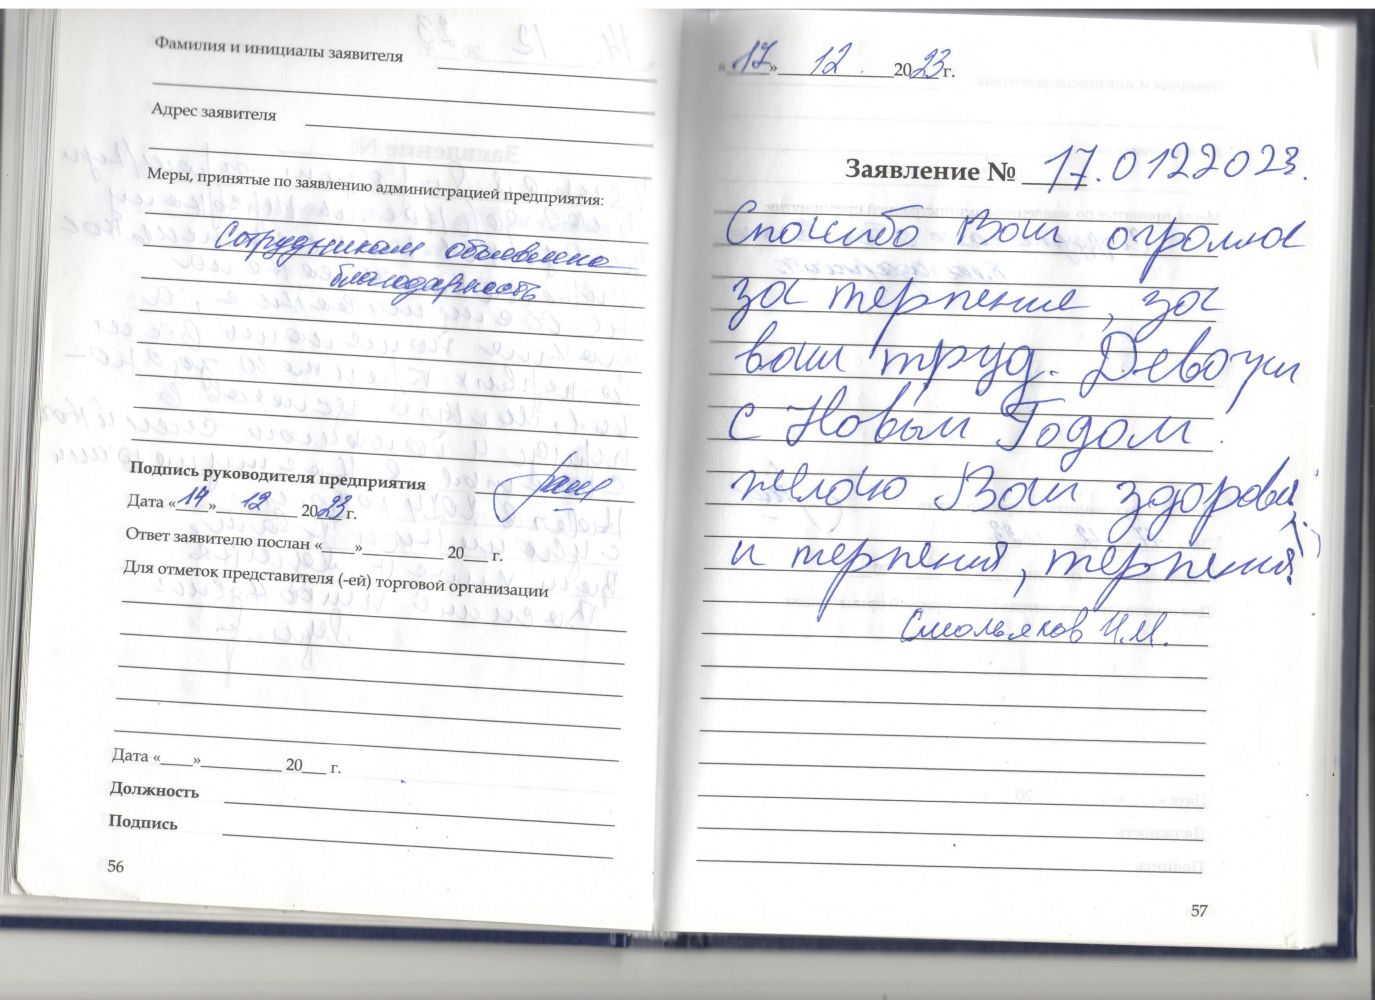 Фамилия и инициалы заявителя
Адрес заявителя
Меры, принятые по заявлению администрацией предприятия:
Сотрудникам объявлена
благодарность
Подпись руководителя предприятия
Дата «14» 12 2023 г.
Ответ заявителю послан «____»__________ 20___ г.
Для отметок представителя (-ей) торговой организации
Дата «____»__________ 20___ г.
Должность
Подпись
56
«17» 12. 2023 г.
Заявление № 17.0122023.
Спосибо Вам огромное
за терпение, за
ваш труд. Девочки
с Новым Годом.
желаю Вам здоровья
и терпения, терпения.
Смольяков И.М.
57